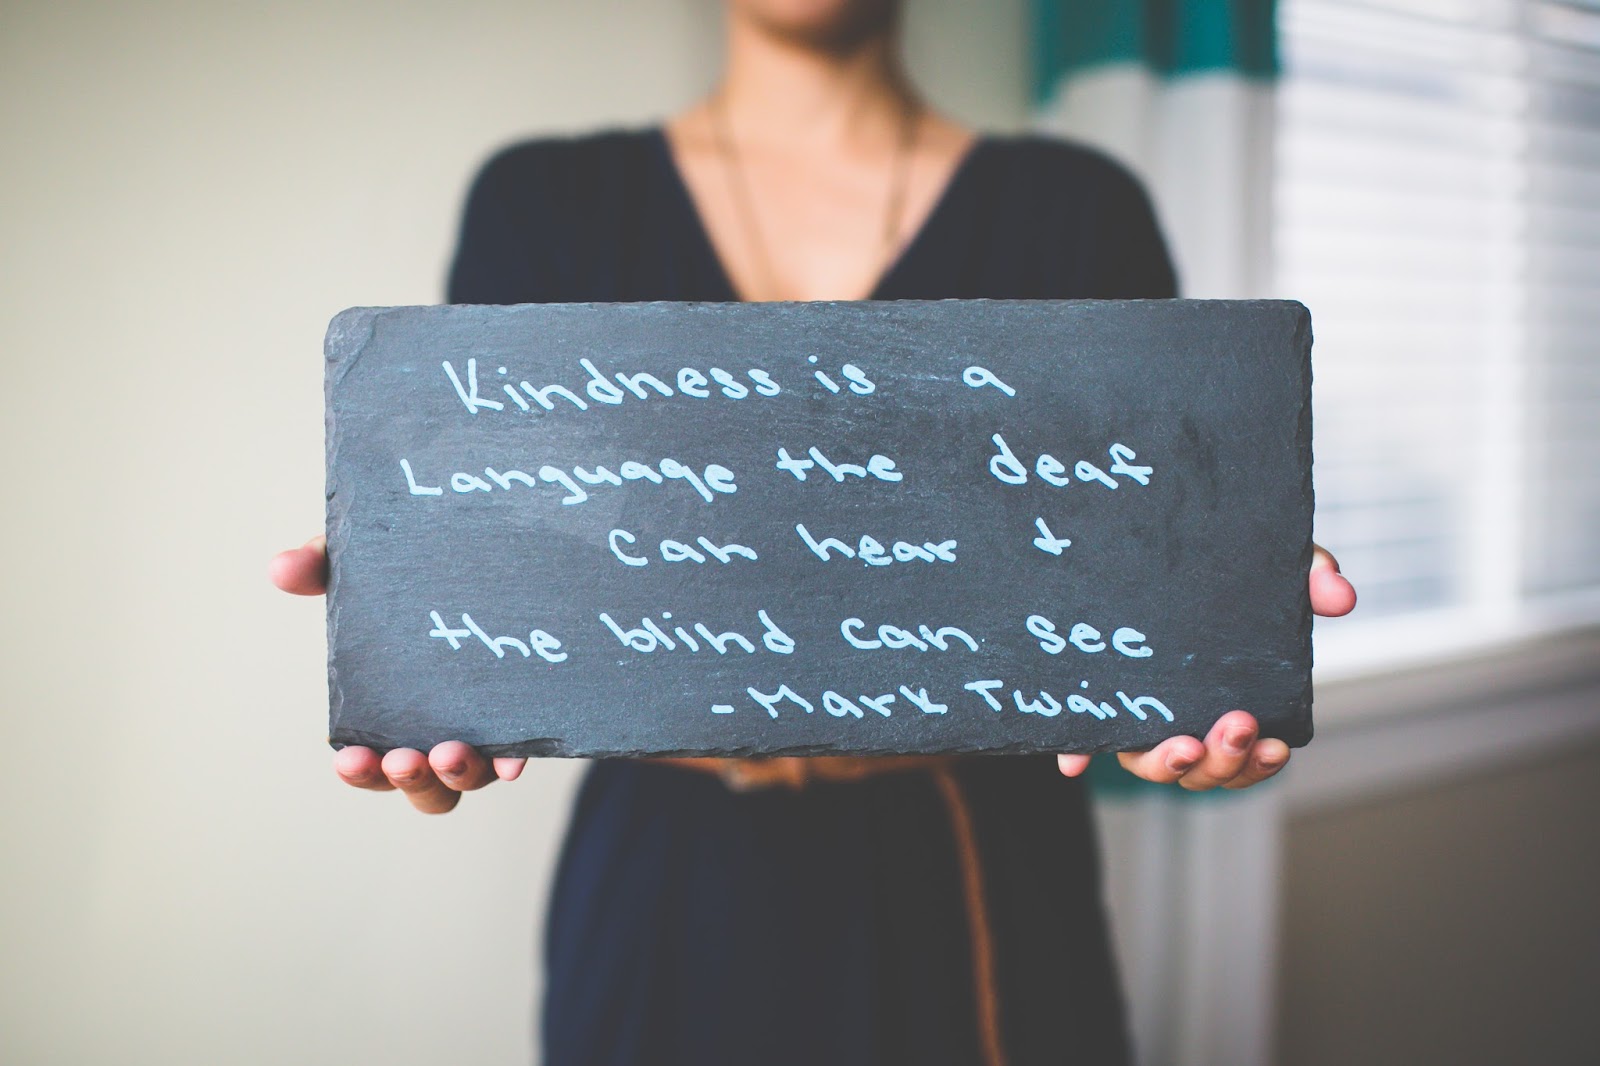 Kindness is a
Language the deaf
can hear &
the blind can see
-Mark Twain